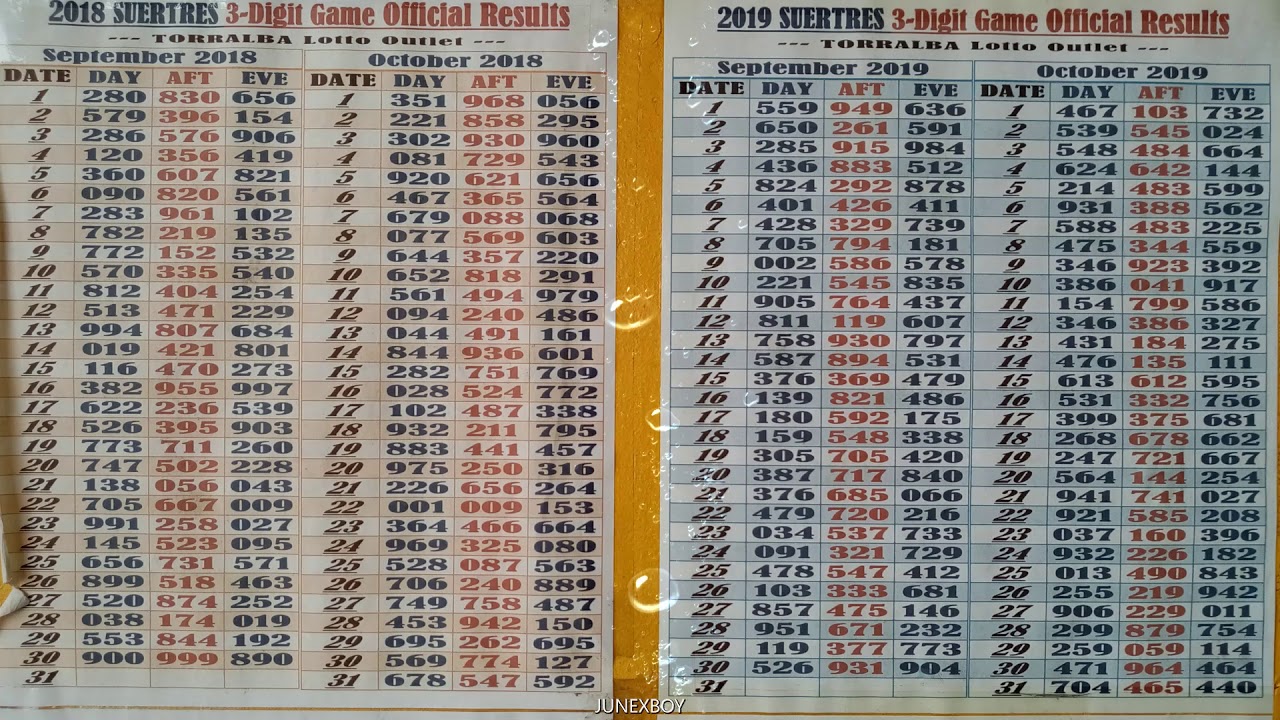 2018 SUERTRES 3-Digit Game Official Results
--- TORRALBA Lotto Outlet ---
September 2018 October 2018
DATE DAY AFT EVE DATE DAY AFT EVE
1 280 830 656 1 351 968 056
2 579 396 154 2 221 858 295
3 286 576 906 3 302 930 960
4 120 356 419 4 081 729 543
5 360 607 821 5 920 621 656
6 090 820 561 6 467 365 564
7 283 961 102 7 679 088 068
8 782 219 135 8 077 569 603
9 772 152 532 9 644 357 220
10 570 335 540 10 652 818 291
11 812 404 254 11 561 494 979
12 513 471 229 12 094 240 486
13 994 807 684 13 044 491 161
14 019 421 801 14 844 936 601
15 116 470 273 15 282 751 769
16 382 955 997 16 028 524 772
17 622 236 539 17 102 487 338
18 526 395 903 18 932 211 795
19 773 711 260 19 883 441 457
20 747 502 228 20 975 250 316
21 138 056 043 21 226 656 264
22 705 667 009 22 001 009 153
23 991 258 027 23 364 466 664
24 145 523 095 24 969 325 080
25 656 731 571 25 528 087 563
26 899 518 463 26 706 240 889
27 520 874 252 27 749 758 487
28 038 174 019 28 453 942 150
29 553 844 192 29 695 262 695
30 900 999 890 30 569 774 127
31 31 678 547 592
2019 SUERTRES 3-Digit Game Official Results
--- TORRALBA Lotto Outlet ---
September 2019 October 2019
DATE DAY AFT EVE DATE DAY AFT EVE
1 559 949 636 1 467 103 732
2 650 261 591 2 539 545 024
3 285 915 984 3 548 484 664
4 436 883 512 4 624 642 144
5 824 292 878 5 214 483 599
6 401 426 411 6 931 388 562
7 428 329 739 7 588 483 225
8 705 794 181 8 475 344 559
9 002 586 578 9 346 923 392
10 221 545 835 10 386 041 917
11 905 764 437 11 154 799 586
12 811 119 607 12 346 386 327
13 758 930 797 13 431 184 275
14 587 894 531 14 476 135 111
15 376 369 479 15 613 612 595
16 139 821 486 16 531 332 756
17 180 592 175 17 399 375 681
18 159 548 338 18 268 678 662
19 305 705 420 19 247 721 667
20 387 717 840 20 564 144 254
21 376 685 066 21 941 741 027
22 479 720 216 22 921 585 208
23 034 537 733 23 037 160 396
24 091 321 729 24 932 226 182
25 478 547 412 25 013 490 843
26 103 333 681 26 255 219 942
27 857 475 146 27 906 229 011
28 951 671 232 28 299 879 754
29 119 377 773 29 259 059 114
30 526 931 904 30 471 964 464
31 31 704 465 440
JUNEXBOY